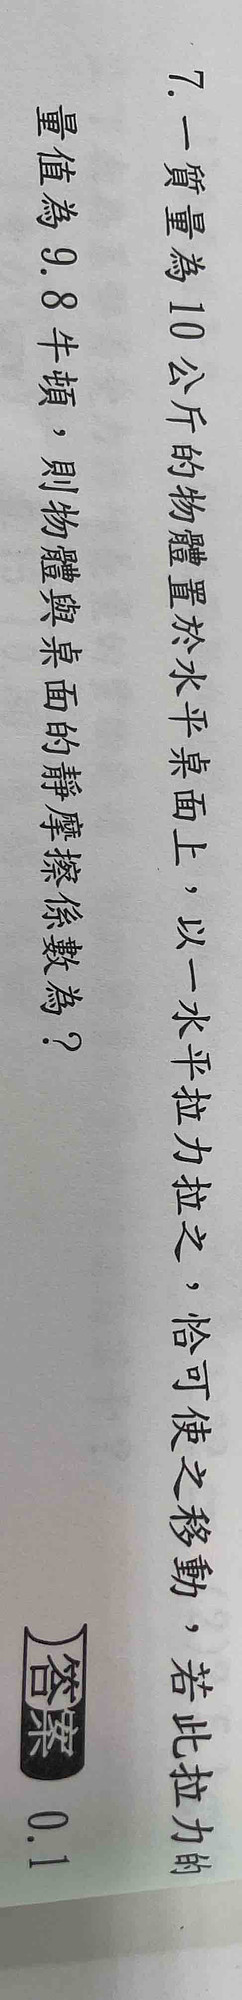 7. 一質量為 10 公斤的物體置於水平桌面上，以一水平拉力拉之，恰可使之移動，若此拉力的
量值為 9.8 牛頓，則物體與桌面的靜摩擦係數為？
答案 0.1